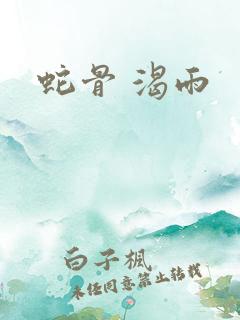 蛇骨 渴雨
白子楓
未经同意禁止转载